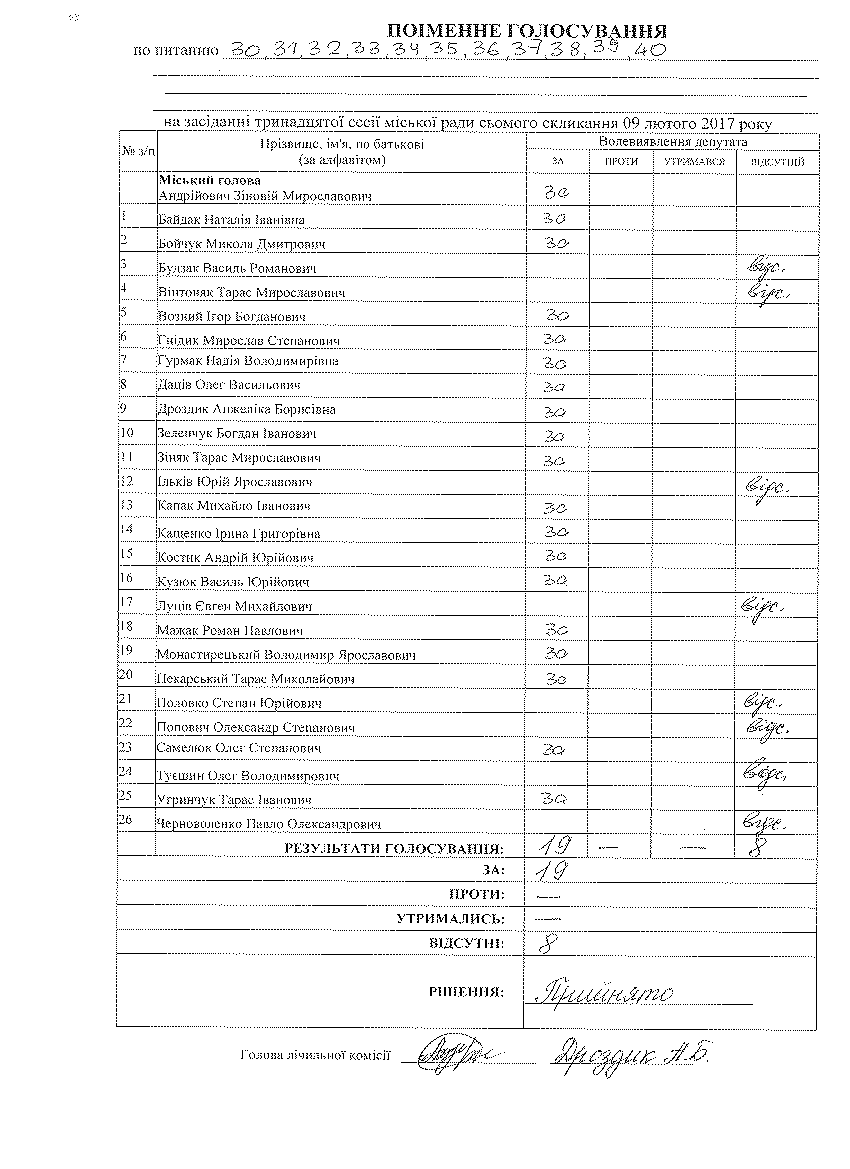 ПОІМЕННЕ ГОЛОСУВАННЯ
по питанню 30, 31, 32, 33, 34, 35, 36, 37, 38, 39, 40
на засіданні тринадцятої сесії міської ради сьомого скликання 09 лютого 2017 року
№ з/п Прізвище, ім'я, по батькові (за алфавітом) Волевиявлення депутата
ЗА ПРОТИ УТРИМАВСЯ ВІДСУТНІЙ
Міський голова
Андрійович Зіновій Мирославович за
1 Байдак Наталія Іванівна за
2 Бойчук Микола Дмитрович за
3 Будзак Василь Романович відс.
4 Вінтоняк Тарас Мирославович відс.
5 Возний Ігор Богданович за
6 Гнідик Мирослав Степанович за
7 Гурмак Надія Володимирівна за
8 Даців Олег Васильович за
9 Дроздик Анжеліка Борисівна за
10 Зеленчук Богдан Іванович за
11 Зіняк Тарас Мирославович за
12 Ільків Юрій Ярославович відс.
13 Капак Михайло Іванович за
14 Кащенко Ірина Григорівна за
15 Костик Андрій Юрійович за
16 Кузюк Василь Юрійович за
17 Луців Євген Михайлович відс.
18 Мажак Роман Павлович за
19 Монастирецький Володимир Ярославович за
20 Пекарський Тарас Миколайович за
21 Половко Степан Юрійович відс.
22 Попович Олександр Степанович відс.
23 Самелюк Олег Степанович за
24 Туєшин Олег Володимирович відс.
25 Угринчук Тарас Іванович за
26 Черноволенко Павло Олександрович відс.
РЕЗУЛЬТАТИ ГОЛОСУВАННЯ: 19 — — 8
ЗА: 19
ПРОТИ: —
УТРИМАЛИСЬ: —
ВІДСУТНІ: 8
РІШЕННЯ: Прийнято
Голова лічильної комісії Дроздик А.Б.